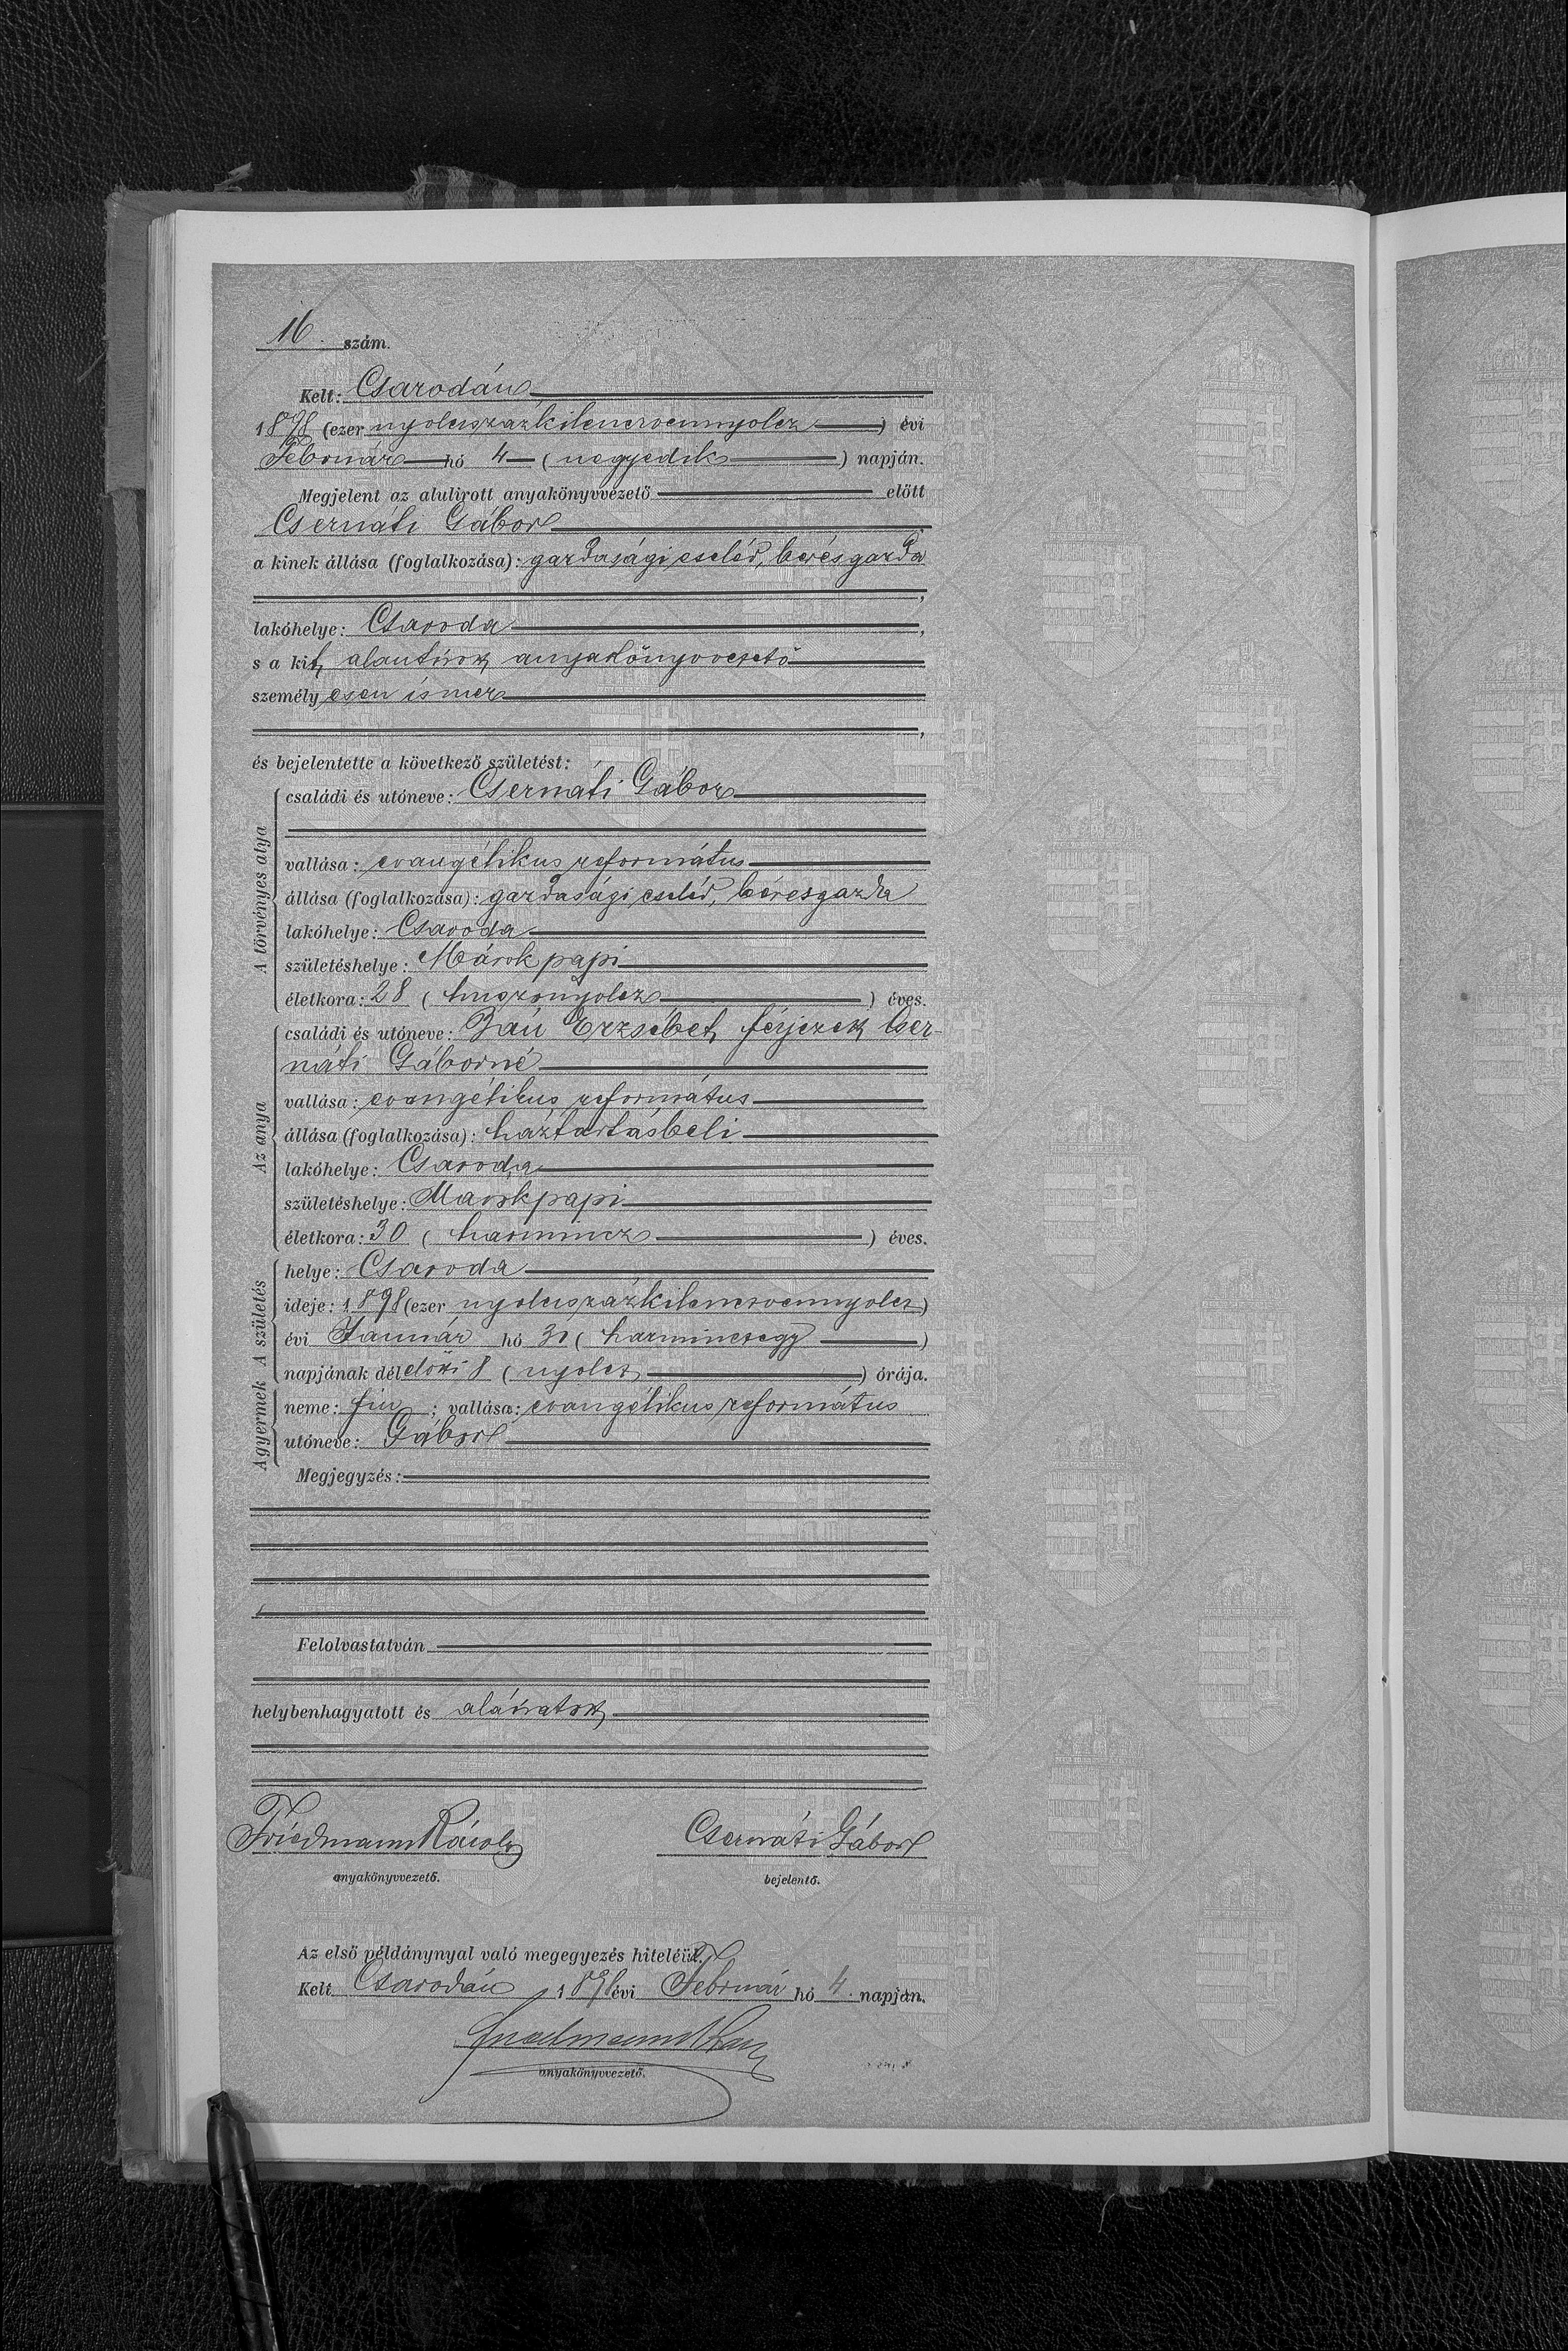 16. szám.
Kelt: Csarodán
1898 (ezer nyolczszazkilenczvennyolcz) évi
Február hó 4 (negyedik) napján.
Megjelent az alulirott anyakönyvvezető előtt
Csernáti Gábor
a kinek állása (foglalkozása): gazdasági cseléd, béresgazda
,
lakóhelye: Csaroda,
s a kit, alantirott anyakönyvvezető
személyesen ismer
,
és bejelentette a következő születést:
A törvényes atya
családi és utóneve: Csernáti Gábor
vallása: evangélikus református
állása (foglalkozása): gazdasági cseléd, béresgazda
lakóhelye: Csaroda
születéshelye: Márok papi
életkora: 28 (huszonyolcz) éves.
Az anya
családi és utóneve: Erzsébet, férjezett Cser-
náti Gáborné
vallása: evangélikus református
állása (foglalkozása): háztartásbeli
lakóhelye: Csaroda
születéshelye: Marokpapi
életkora: 30 (harmincz) éves.
A születés
helye: Csaroda
ideje: 1898 (ezer nyolczszázkilenczvennyolcz)
évi Január hó 31 (harminczegy)
napjának délelőtti 8 (nyolcz) órája.
A gyermek
neme: fiu; vallása: evangélikus református
utóneve: Gábor
Megjegyzés:
Felolvastatván
helybenhagyatott és aláiratott
Friedmann Károly Csernáti Gábor
anyakönyvvezető. bejelentő.
Az első példánynyal való megegyezés hiteléül.
Kelt Csarodán 1898 évi Február hó 4. napján.
anyakönyvvezető.